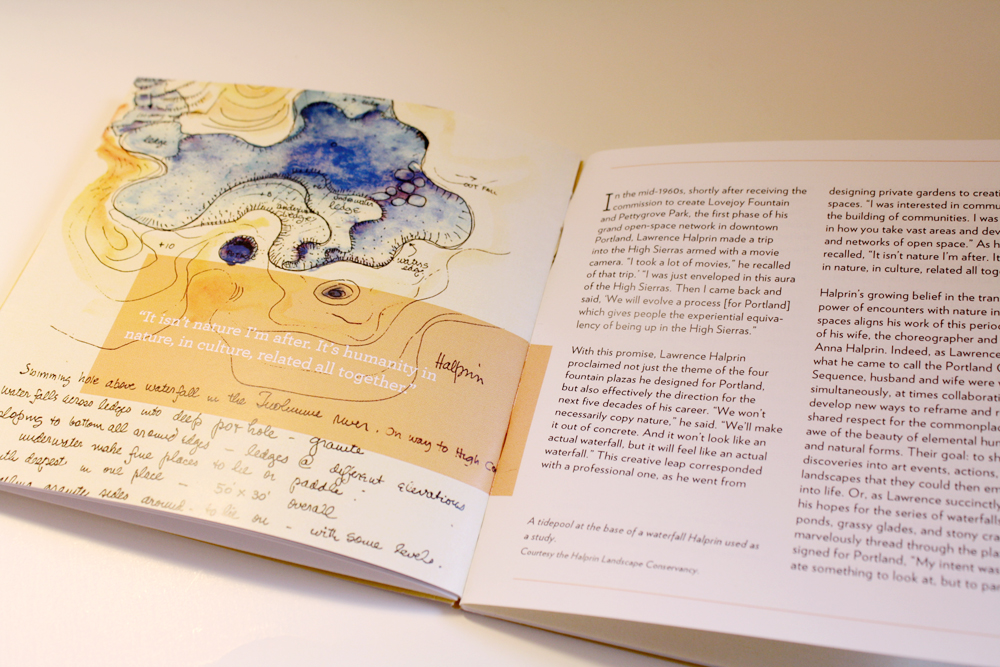 ledge
+10
+8
underwater
ledge
underwater
ledge
OUT FALL
waters
edge
"It isn't nature I'm after. It's humanity in
nature, in culture, related all together."
Halprin
Swimming hole above waterfall in the Tuolumne river. On way to High
water falls across ledges into deep pot hole - granite
sloping to bottom all around edges - ledges @ different elevations
underwater make fine places to lie or paddle.
with deepest in one place - 50' x 30' overall
granity sides around. to lie on - with some levels.
In the mid-1960s, shortly after receiving the
commission to create Lovejoy Fountain
and Pettygrove Park, the first phase of his
grand open-space network in downtown
Portland, Lawrence Halprin made a trip
into the High Sierras armed with a movie
camera. "I took a lot of movies," he recalled
of that trip.' "I was just enveloped in this aura
of the High Sierras. Then I came back and
said, 'We will evolve a process [for Portland]
which gives people the experiential equiva-
lency of being up in the High Sierras."
With this promise, Lawrence Halprin
proclaimed not just the theme of the four
fountain plazas he designed for Portland,
but also effectively the direction for the
next five decades of his career. "We won't
necessarily copy nature," he said. "We'll make
it out of concrete. And it won't look like an
actual waterfall, but it will feel like an actual
waterfall." This creative leap corresponded
with a professional one, as he went from
A tidepool at the base of a waterfall Halprin used as
a study.
Courtesy the Halprin Landscape Conservancy.
designing private gardens to creat
spaces. "I was interested in commu
the building of communities. I was
in how you take vast areas and dev
and networks of open space." As h
recalled, "It isn't nature I'm after. It
in nature, in culture, related all tog
Halprin's growing belief in the tran
power of encounters with nature in
spaces aligns his work of this perio
of his wife, the choreographer and
Anna Halprin. Indeed, as Lawrence
what he came to call the Portland O
Sequence, husband and wife were
simultaneously, at times collaborat
develop new ways to reframe and r
shared respect for the commonplac
awe of the beauty of elemental hum
and natural forms. Their goal: to sh
discoveries into art events, actions,
landscapes that they could then em
into life. Or, as Lawrence succinctly
his hopes for the series of waterfalls
ponds, grassy glades, and stony cra
marvelously thread through the pla
signed for Portland, "My intent was
ate something to look at, but to pa